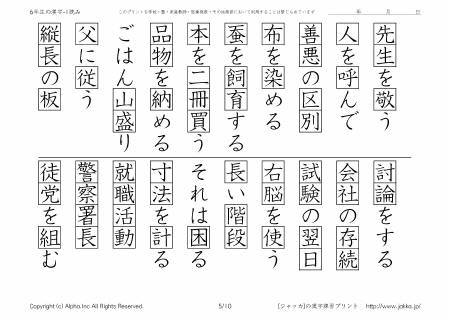 6年生の漢字-1読み
このプリントを学校・塾・家庭教師・医療福祉・その他施設において利用することは禁じられています
年 月 日
先生を敬う
人を呼んで
善悪の区別
布を染める
蚕を飼育する
本を二冊買う
品物を納める
ごはん山盛り
父に従う
縦長の板
討論をする
会社の存続
試験の翌日
右脳を使う
長い階段
それは困る
寸法を計る
就職活動
警察署長
徒党を組む
Copyright (c) Alpha.Inc All Rights Reserved.
5/10
[ジャッカ]の漢字練習プリント http://www.jakka.jp/